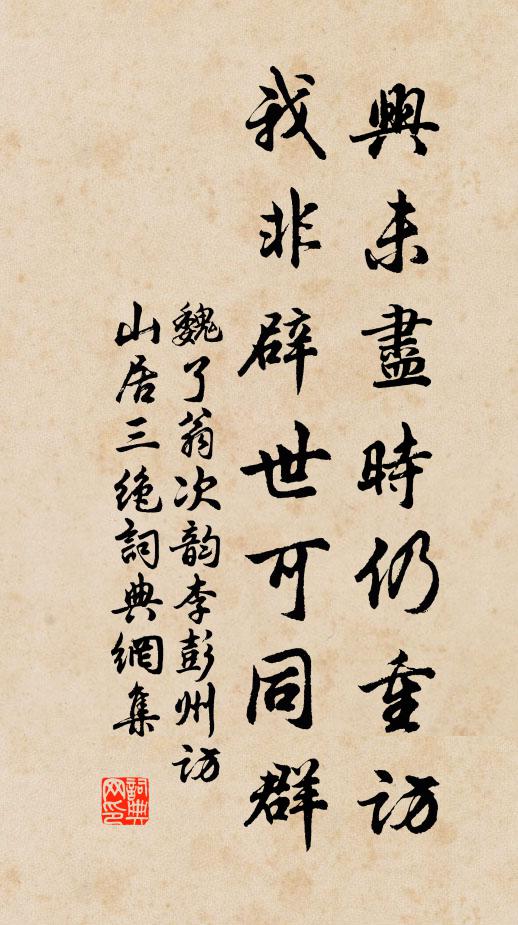 興未盡時仍重訪
我非辟世可同群
魏了翁次韵李彭州訪
山居三绝詞典網集
詞典
网印